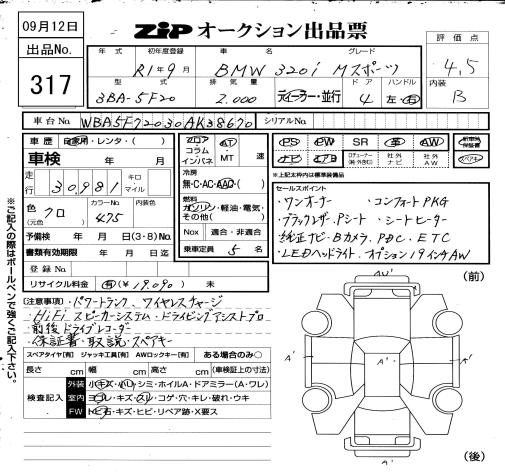 09月12日
ZIP オークション出品票
出品No. 317
年式 初年度登録 車名 グレード
R1年9月 BMW 320i Mスポーツ
型式 排気量 ドア ハンドル
3BA-5F20 2.000 ディーラー・並行 4 左・右
評価点 4,5
内装 B
車台No. WBA5F72030AK38670 シリアルNo.
車歴 自家用・レンタ・( )
車検 年 月
走行 30,981 キロ マイル
色(元色) クロ カラーNo. 475 内装色
予備検 年 月 日(3・8)No.
書類有効期限 年 月 日迄
登録No.
リサイクル料金 有(¥19,090) 未
フロア コラム インパネ AT MT 速
冷房 無・C・AC・AAC・( )
燃料 ガソリン・軽油・電気・その他( )
Nox 適合・非適合
乗車定員 5 名
PS PW SR 革 AW 新車時保証書
ナビ エアB ロデューナー(純・外別) 社外ナビ 社外AW スペアキー
※上記太枠内は標準装備品
セールスポイント
・ワンオーナー ・コンフォートPKG
・ブラックレザーPシート ・シートヒーター
・純正ナビ・Bカメラ・PDC・ETC
・LEDヘッドライト・オプション19インチAW
[注意事項]・パワートランク・ワイヤレスチャージ
・HiFiスピーカーシステム・ドライビングアシストプロ
・前後ドライブレコーダー
・保証書・取説・スペアキー
スペアタイヤ[有] ジャッキ工具[有] AWロックキー[有] ある場合のみ○
長さ cm 幅 cm 高さ cm (車検証上の寸法)
検査記入
外装 小キズ・凹・シミ・ホイルA・ドアミラー(A・ワレ)
室内 ヨゴレ・キズ・スレ・コゲ・穴・キレ・破れ・ウキ
FW トビ石・キズ・ヒビ・リペア跡・X要ス
※ご記入の際はボールペンで強くご記入下さい。
(前)
A'
A'
A'
(後)